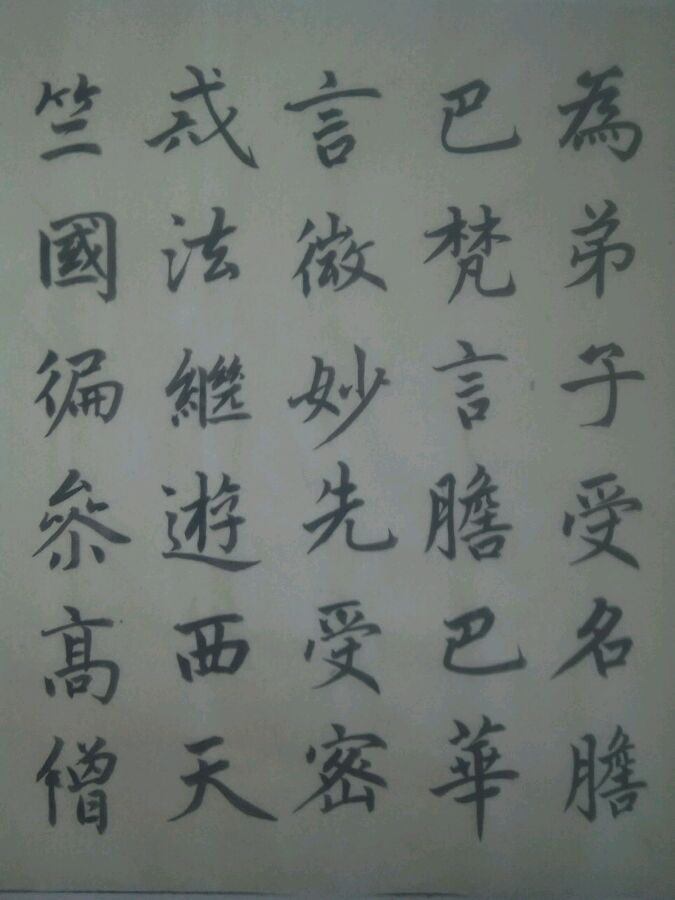 為弟子受名膽
巴梵言膽巴華
言微妙先受密
戒法繼遊西天
竺國徧叅高僧